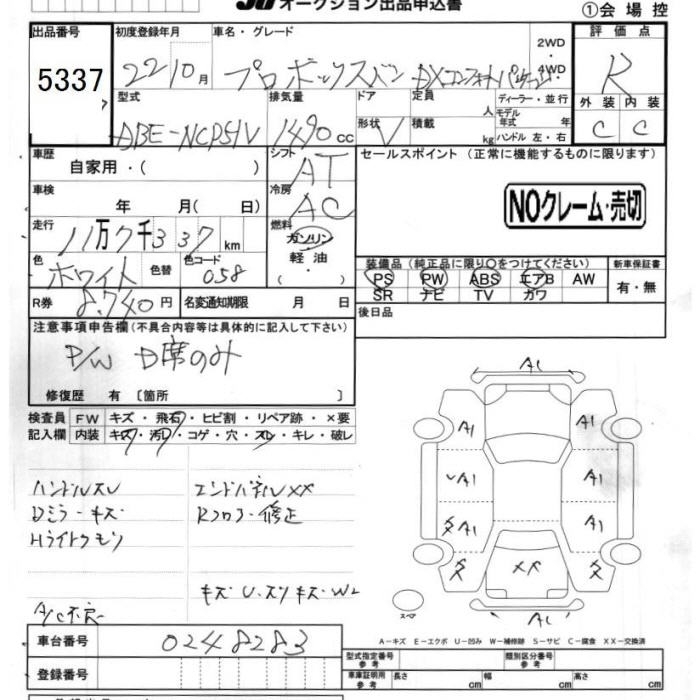 オークション出品申込書
①会場控
出品番号
5337
初度登録年月
22 10月
車名・グレード
プロボックスバン DXコンフォートパッケージ
2WD・4WD
評価点
R
外装 内装
C C
型式
DBE-NCP51V
排気量
1490cc
ドア
形状 V
定員 人
積載 kg
ディーラー・並行
モデル年式 年
ハンドル 左・右
車歴
自家用・( )
シフト
AT
セールスポイント (正常に機能するものに限ります)
NOクレーム・売切
車検
年 月( 日)
冷房
AC
走行
11万7千337km
燃料
ガソリン
軽油
・( )
色
ホワイト
色替
色コード
058
装備品(純正品に限り○をつけてください)
PS PW ABS エアB AW
SR ナビ TV ガワ
新車保証書
有・無
R券
8,740円
名変通知期限 月 日
後日品
注意事項申告欄(不具合内容等は具体的に記入して下さい)
P/W D席のみ
修復歴 有〔箇所 〕
検査員記入欄
FW キズ・飛石・ヒビ割・リペア跡・×要
内装 キズ・汚レ・コゲ・穴・スレ・キレ・破レ
ハンドルスレ
Dミラーキズ
Hライトクモリ
A/C不良
エンドパネルXX
Rフロア修正
キズ U.スリキズ W2
A1
A1 A1
A1 A1
A1 A1
XX
A1
スペア
A-キズ E-エクボ U-凹み W-補修跡 S-サビ C-腐食 XX-交換済
車台番号
0248283
登録番号
型式指定番号 参考
類別区分番号 参考
車庫証明用 参考
長さ cm 幅 cm 高さ cm